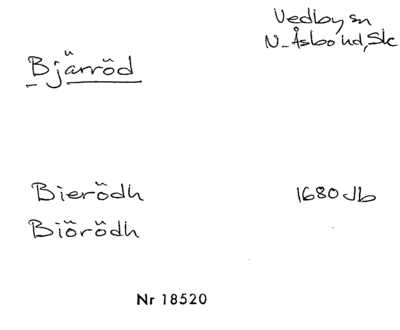 Vedby sn
N. Åsbo hd, Sk
Bjärröd
Bierödh 1680 Jb
Biörödh
Nr 18520